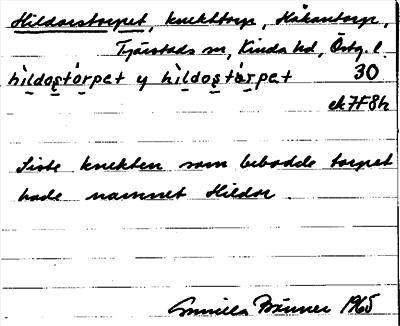 Hildorstorpet, knekttorp, Håkantorp,
Tjärstads sn, Kinda hd, Östg. l.
hìldostòrpet y hìldostòrpet 30
ek7F8h
Siste knekten som bebodde torpet
hade namnet Hildor.
Gunilla Bränner 1965